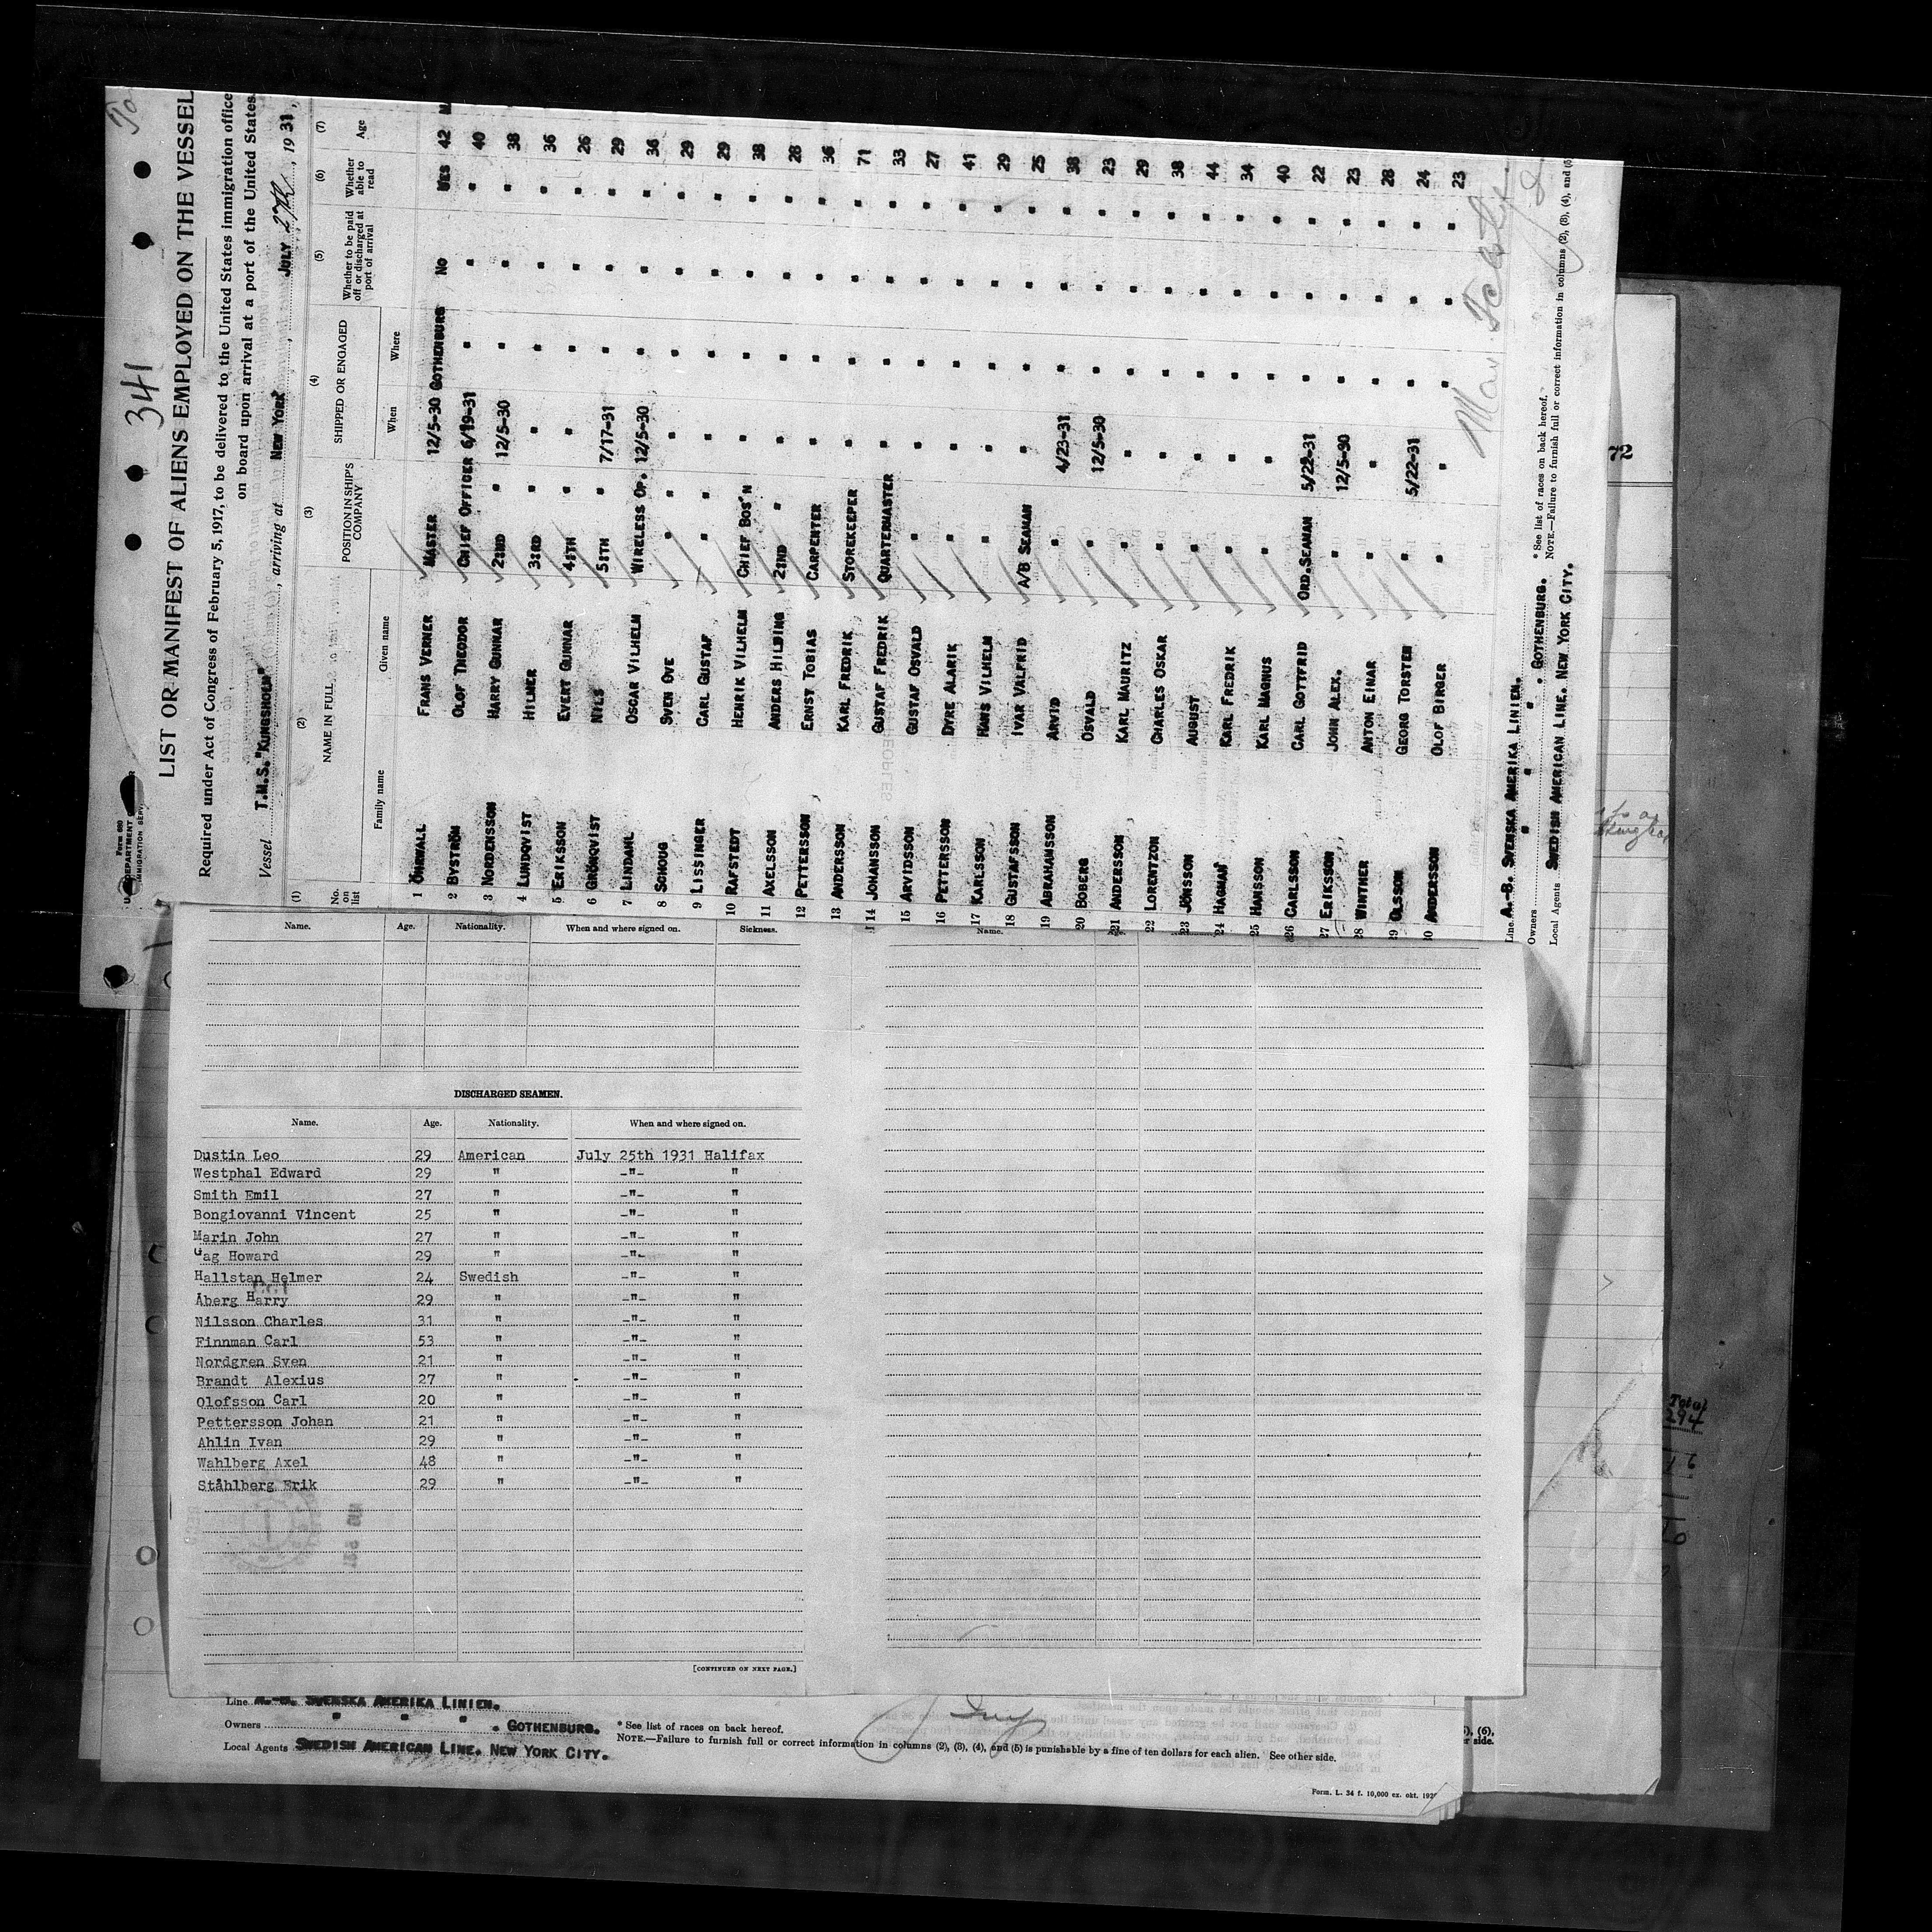 341
Form 680
LIST OR MANIFEST OF ALIENS EMPLOYED ON THE VESSEL
Required under Act of Congress of February 5, 1917, to be delivered to the United States immigration office
on board upon arrival at a port of the United States
Vessel T.M.S."KUNGSHOLM", arriving at NEW YORK, JULY 27th, 1931,
(1) (2) (3) (4) (5) (6) (7)
No. on list NAME IN FULL POSITION IN SHIP'S COMPANY SHIPPED OR ENGAGED Whether to be paid off or discharged at port of arrival Whether able to read Age
Family name Given name When Where
1 ÖHRWALL FRANS VERNER MASTER 12/5-30 GOTHENBURG NO YES 42
2 BYSTRÖM OLOF THEODOR CHIEF OFFICER 6/19-31 " " " 40
3 NORDENSSON HARRY GUNNAR 2ND " 12/5-30 " " " 38
4 LUNDQVIST HILMER 3RD " " " " " 36
5 ERIKSSON EVERT GUNNAR 4TH " " " " " 26
6 GRÖNQVIST NILS 5TH " 7/17-31 " " " 29
7 LINDAHL OSCAR VILHELM WIRELESS OP. 12/5-30 " " " 36
8 SCHOUG SVEN OVE " " " " " " 29
9 LISSINGER CARL GUSTAF " " " " " " 29
10 RAFSTEDT HENRIK VILHELM CHIEF BOS'N " " " " 38
11 AXELSSON ANDERS HILDING 2ND " " " " " 28
12 PETTERSSON ERNST TOBIAS CARPENTER " " " " 36
13 ANDERSSON KARL FREDRIK STOREKEEPER " " " " 71
14 JOHANSSON GUSTAF FREDRIK QUARTERMASTER " " " " 33
15 ARVIDSSON GUSTAF OSVALD " " " " " 27
16 PETTERSSON DYRE ALARIK " " " " " 41
17 KARLSSON HANS VILHELM " " " " " 29
18 GUSTAFSSON IVAR VALFRID A/B SEAMAN " " " " 25
19 ABRAHAMSSON ARVID " 4/23-31 " " " 38
20 BOBERG OSVALD " 12/5-30 " " " 23
21 ANDERSSON KARL MAURITZ " " " " " 29
22 LORENTZON CHARLES OSKAR " " " " " 38
23 JÖNSSON AUGUST " " " " " 44
24 HAGMAN KARL FREDRIK " " " " " 34
25 HANSSON KARL MAGNUS " " " " " 40
26 CARLSSON CARL GOTTFRID ORD.SEAMAN 5/22-31 " " " 22
27 ERIKSSON JOHN ALEX. " 12/5-30 " " " 23
28 WINTHER ANTON EINAR " " " " " 28
29 OLSSON GEORG TORSTEN " 5/22-31 " " " 24
30 ANDERSSON OLOF BIRGER " " " " " 23
Line A.-B. SVENSKA AMERIKA LINIEN.
Owners " " " . GOTHENBURG. * See list of races on back hereof.
Local Agents SWEDISH AMERICAN LINE. NEW YORK CITY. NOTE.—Failure to furnish full or correct information in columns (2), (3), (4), and (5
72
Name. Age. Nationality. When and where signed on. Sickness. Name.
DISCHARGED SEAMEN.
Name. Age. Nationality. When and where signed on.
Dustin Leo 29 American July 25th 1931 Halifax
Westphal Edward 29 " -"- "
Smith Emil 27 " -"- "
Bongiovanni Vincent 25 " -"- "
Marin John 27 " -"- "
Gag Howard 29 " -"- "
Hallstan Helmer 24 Swedish -"- "
Åberg Harry 29 " -"- "
Nilsson Charles 31 " -"- "
Finnman Carl 53 " -"- "
Nordgren Sven 21 " -"- "
Brandt Alexius 27 " -"- "
Olofsson Carl 20 " -"- "
Pettersson Johan 21 " -"- "
Ahlin Ivan 29 " -"- "
Wahlberg Axel 48 " -"- "
Ståhlberg Erik 29 " -"- "
[CONTINUED ON NEXT PAGE.]
Total
294
Line A.-B. SVENSKA AMERIKA LINIEN.
Owners " " " . GOTHENBURG. * See list of races on back hereof.
Local Agents SWEDISH AMERICAN LINE. NEW YORK CITY. NOTE.—Failure to furnish full or correct information in columns (2), (3), (4), and (5) is punishable by a fine of ten dollars for each alien. See other side.
Form. L. 34 f. 10,000 ex. okt. 192